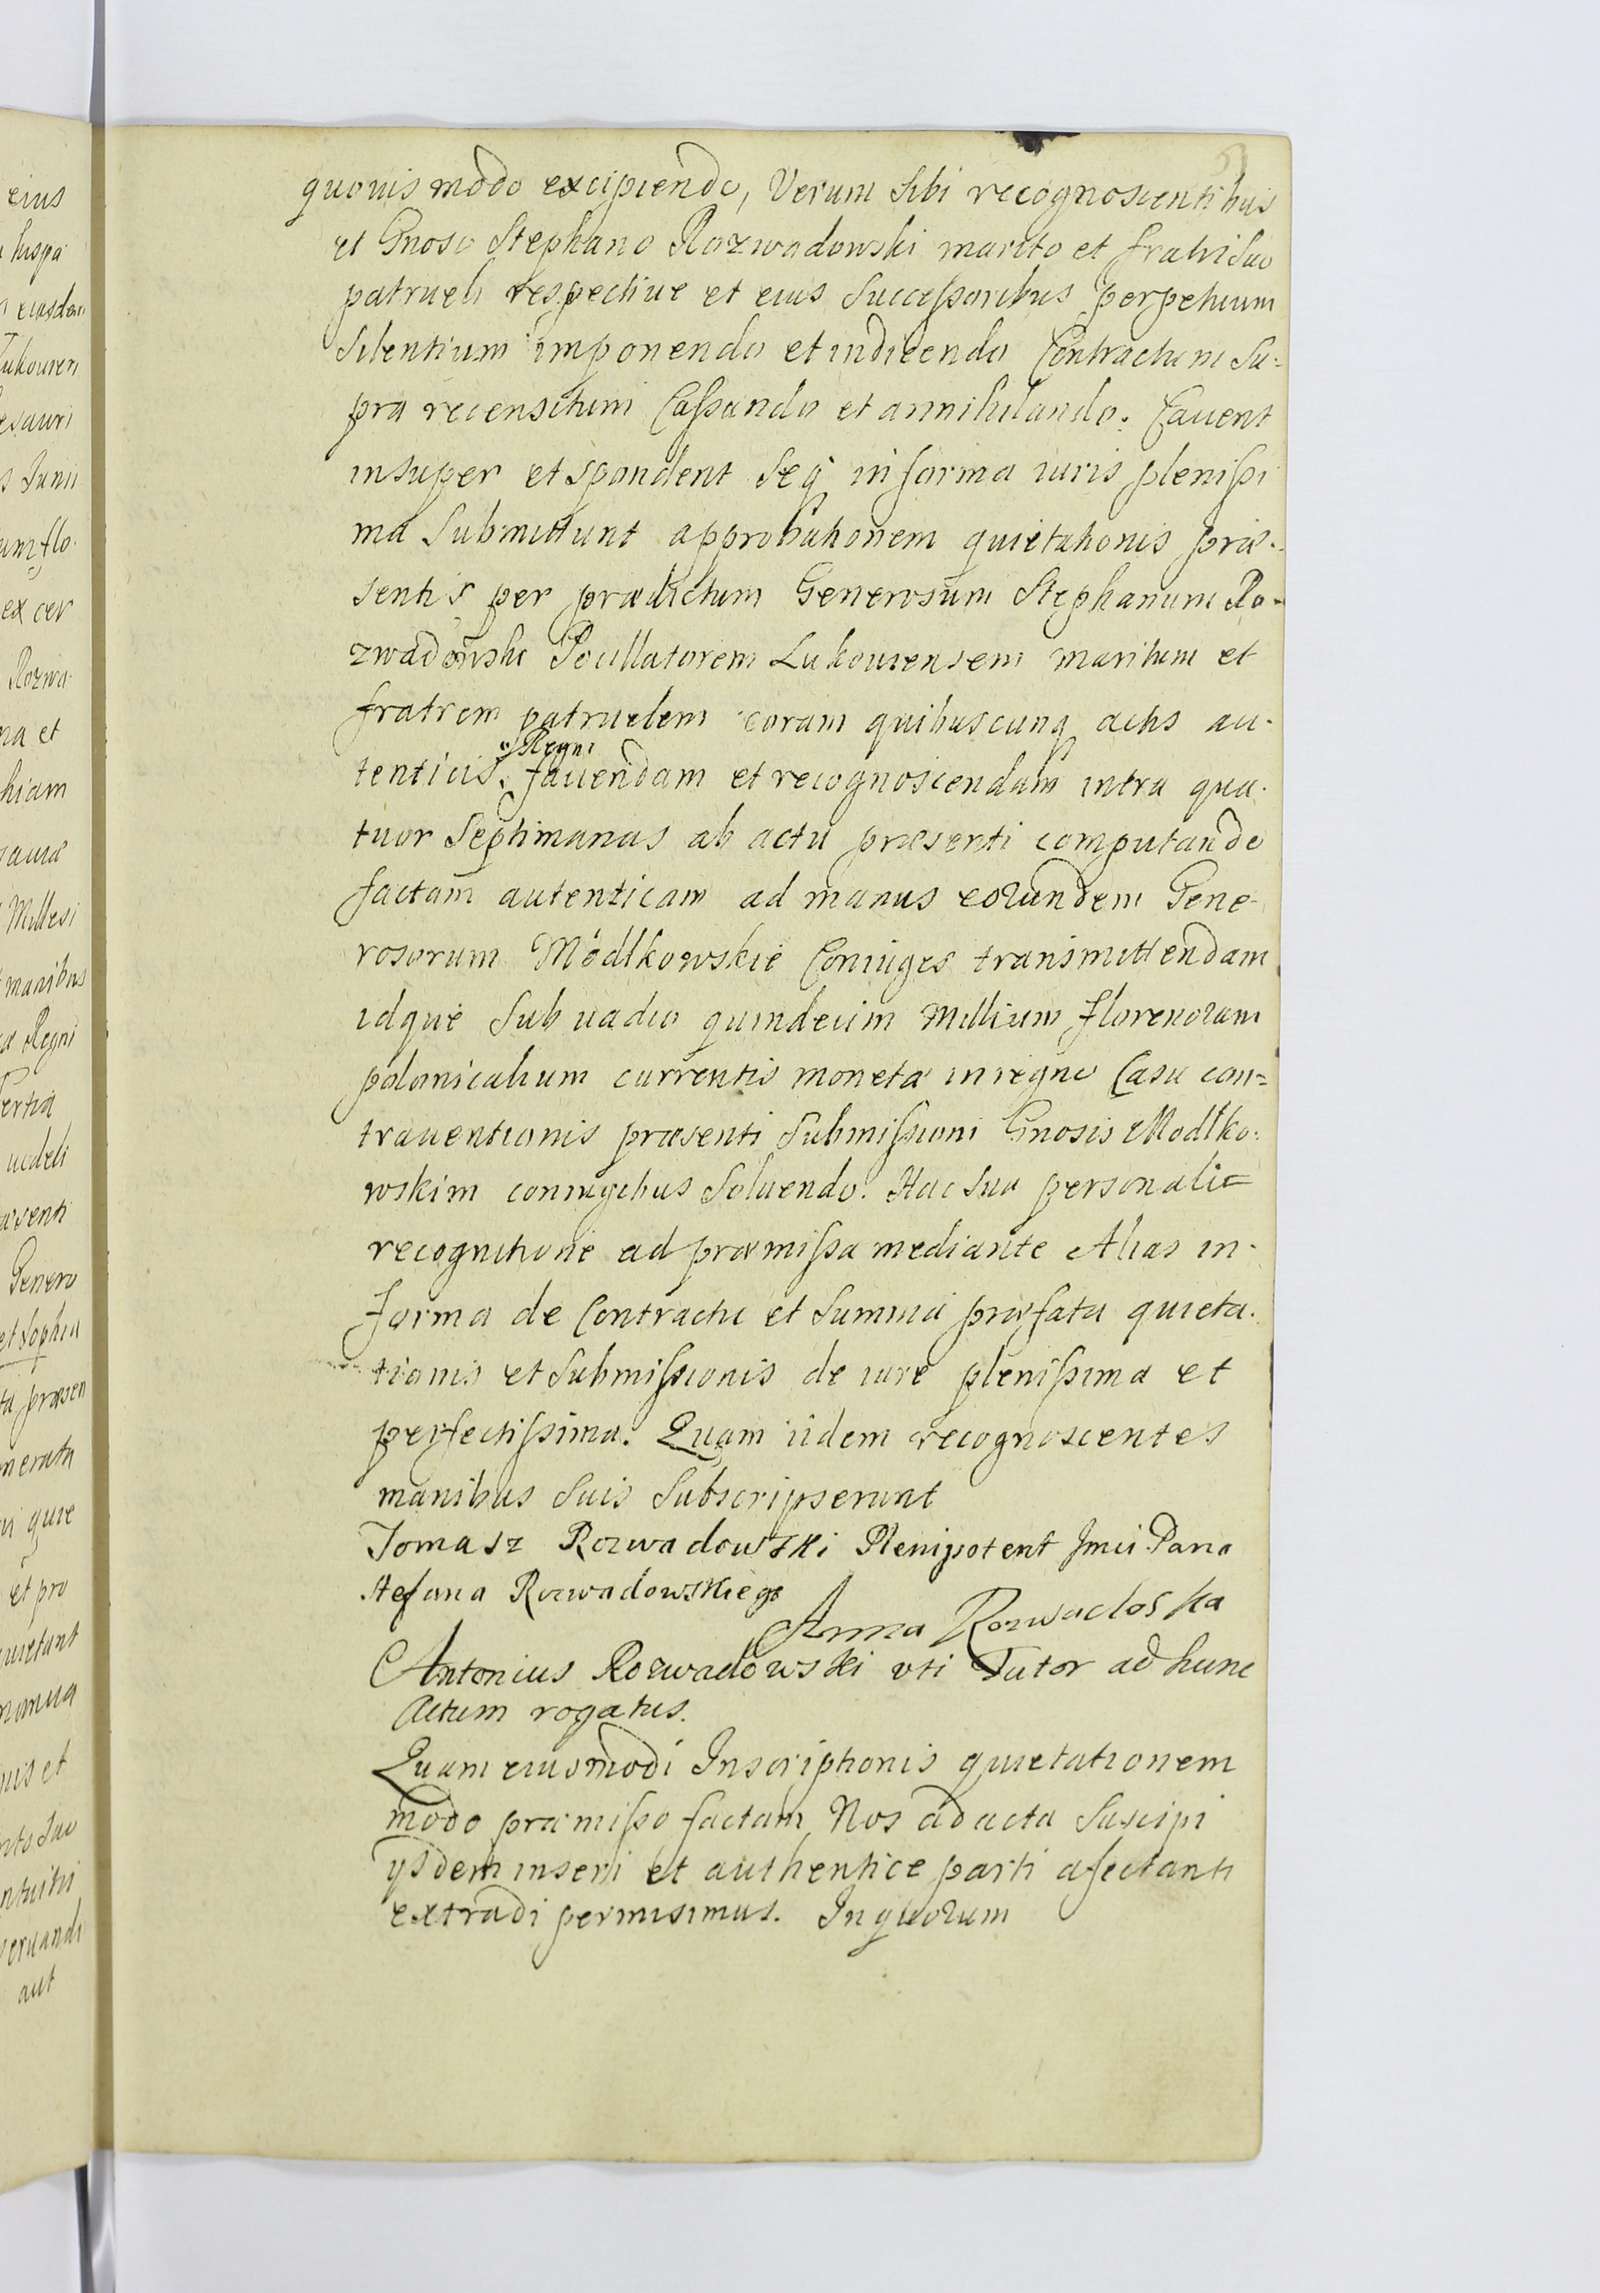 quovis modo excipiendo, Verum Sibi recognoscentibus
et Gnoso Stephano Rozwadowski marito et fratri Suo
patrueli respective et eius Successoribus perpetuum
Silentium imponendo et indicendo Contractum Su-
pra recensitum Cassando et annihilando. Cavent
insuper et spondent Seq in forma iuris plenissi
ma Submittunt approbationem quietationis præ-
sentis per prædictum Generosum Stephanum Ro-
zwadowski Pocillatorem Lukoviensem maritum et
fratrem patruelem coram quibuscunq actis au-
tenticis Regni favendam et recognoscendam intra qua-
tuor Septimanas ab actu præsenti computando
factam autenticam ad manus eorundem Gene-
rosorum Modlkowskie Coniuges transmittendam
idque Sub vadio quindecim Millium florenorum
polonicalium currentis monetæ in regno Casu con=
traventionis præsenti Submissioni Gnosis Modlko-
wskim coniugibus Solvendo. Hac Sua personali=
recognitione ad præmissa mediante Alias in-
forma de Contractu et Summa præfata quieta-
tionis et Submissionis de iure plenissima et
perfectissima. Quam iidem recognoscentes
manibus Suis Subscripserunt
Tomasz Rozwadowski Plenipotent Jmci Pana
Stefana Rozwadowskiego
Anna Rozwadoska
Antonius Rozwadowski uti Tutor ad hunc
Actum rogatus.
Quam eiusmodi Inscriptionis quietationem
modo præmisso factam Nos ad acta Suscipi
ysdem inseri et authentice parti afectanti
extradi permisimus. In quorum
eius
eiusdem
Junii
ex cer
Rozwa
na et
Millesi
manibus
Regni
Genero
et Sophia
ta præsen
et pro
uis et
aut